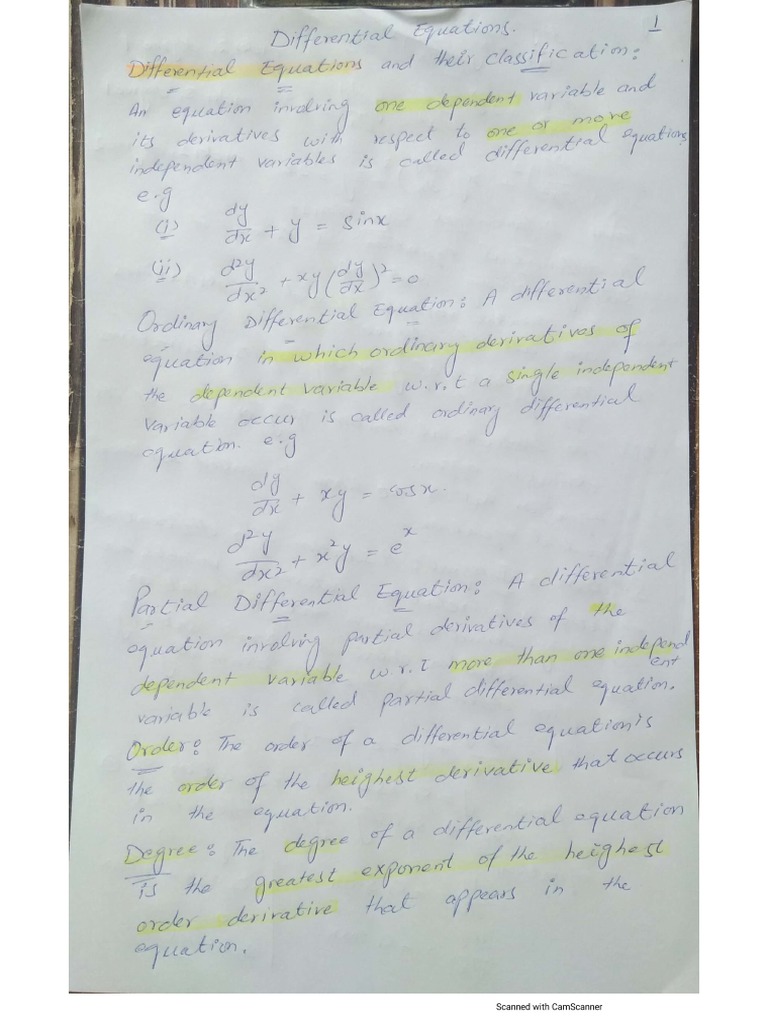 Differential Equations.
1
Differential Equations and their classification:
An equation involving one dependent variable and
its derivatives with respect to one or more
independent variables is called differential equations
e.g
(i) dy/dx + y = sinx
(ii) d²y/dx² + xy(dy/dx)² = 0
Ordinary Differential Equation: A differential
equation in which ordinary derivatives of
the dependent variable w.r.t a single independent
variable occur is called ordinary differential
equation. e.g
dy/dx + xy = cosx.
d²y/dx² + x²y = eˣ
Partial Differential Equation: A differential
equation involving partial derivatives of the
dependent variable w.r.t more than one independent
variable is called partial differential equation.
Order: The order of a differential equation is
the order of the heighest derivative that occurs
in the equation.
Degree: The degree of a differential equation
is the greatest exponent of the heighest
order derivative that appears in the
equation.
Scanned with CamScanner